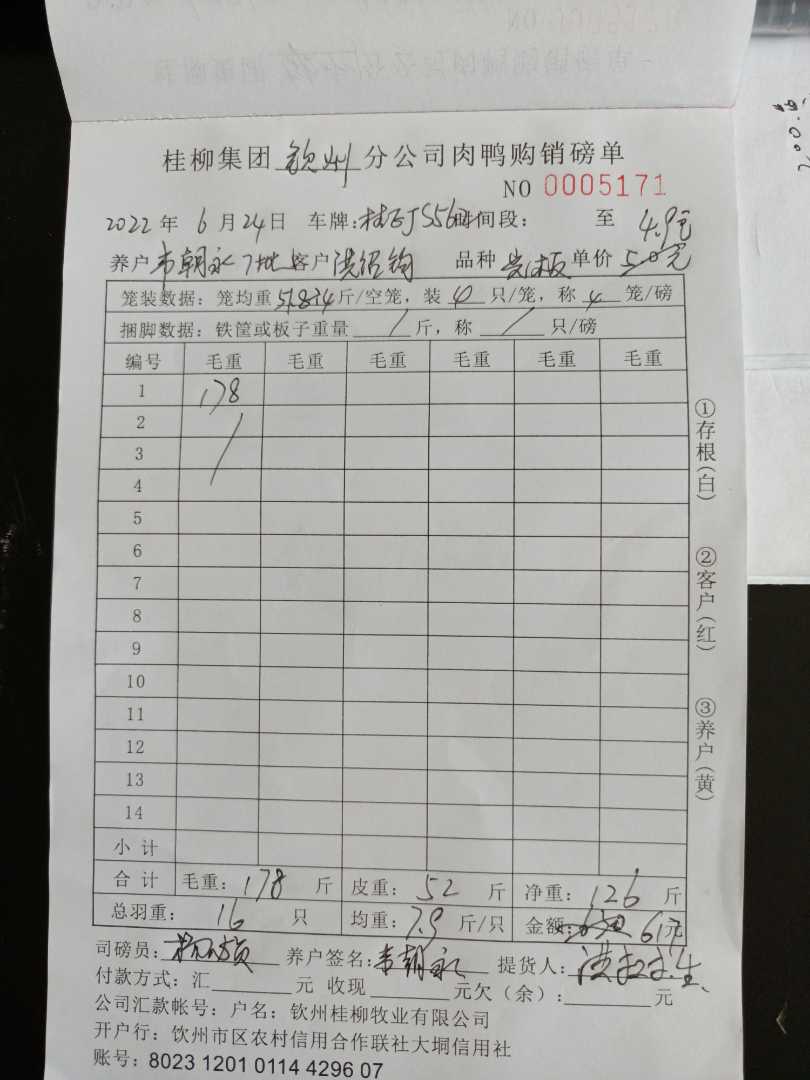 桂柳集团 钦州 分公司肉鸭购销磅单
NO 0005171
2022 年 6 月 24 日 车牌: 时间段: 至 4.9元
养户 韦朝永 7批 客户 品种 单价 5.0元
笼装数据: 笼均重 斤/空笼, 装 4 只/笼, 称 4 笼/磅
捆脚数据: 铁筐或板子重量 / 斤, 称 / 只/磅
编号 毛重 毛重 毛重 毛重 毛重 毛重
1 178
2
3
4
5
6
7
8
9
10
11
12
13
14
小 计
合 计 毛重: 178 斤 皮重: 52 斤 净重: 126 斤
总羽重: 16 只 均重: 7.9 斤/只 金额: 617元
司磅员: 养户签名: 韦朝永 提货人:
付款方式: 汇 元 收现 元欠(余): 元
公司汇款帐号: 户名: 钦州桂柳牧业有限公司
开户行: 钦州市区农村信用合作联社大垌信用社
账号: 8023 1201 0114 4296 07
①存根(白)
②客户(红)
③养户(黄)